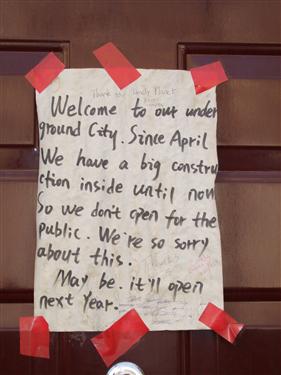 Thank you Lonely Planet
Welcome to our under
ground City. Since April
We have a big constru
ction inside until now
So we don't open for the
public. We're so sorry
about this.
Thanks
May be. it'll open
next Year.